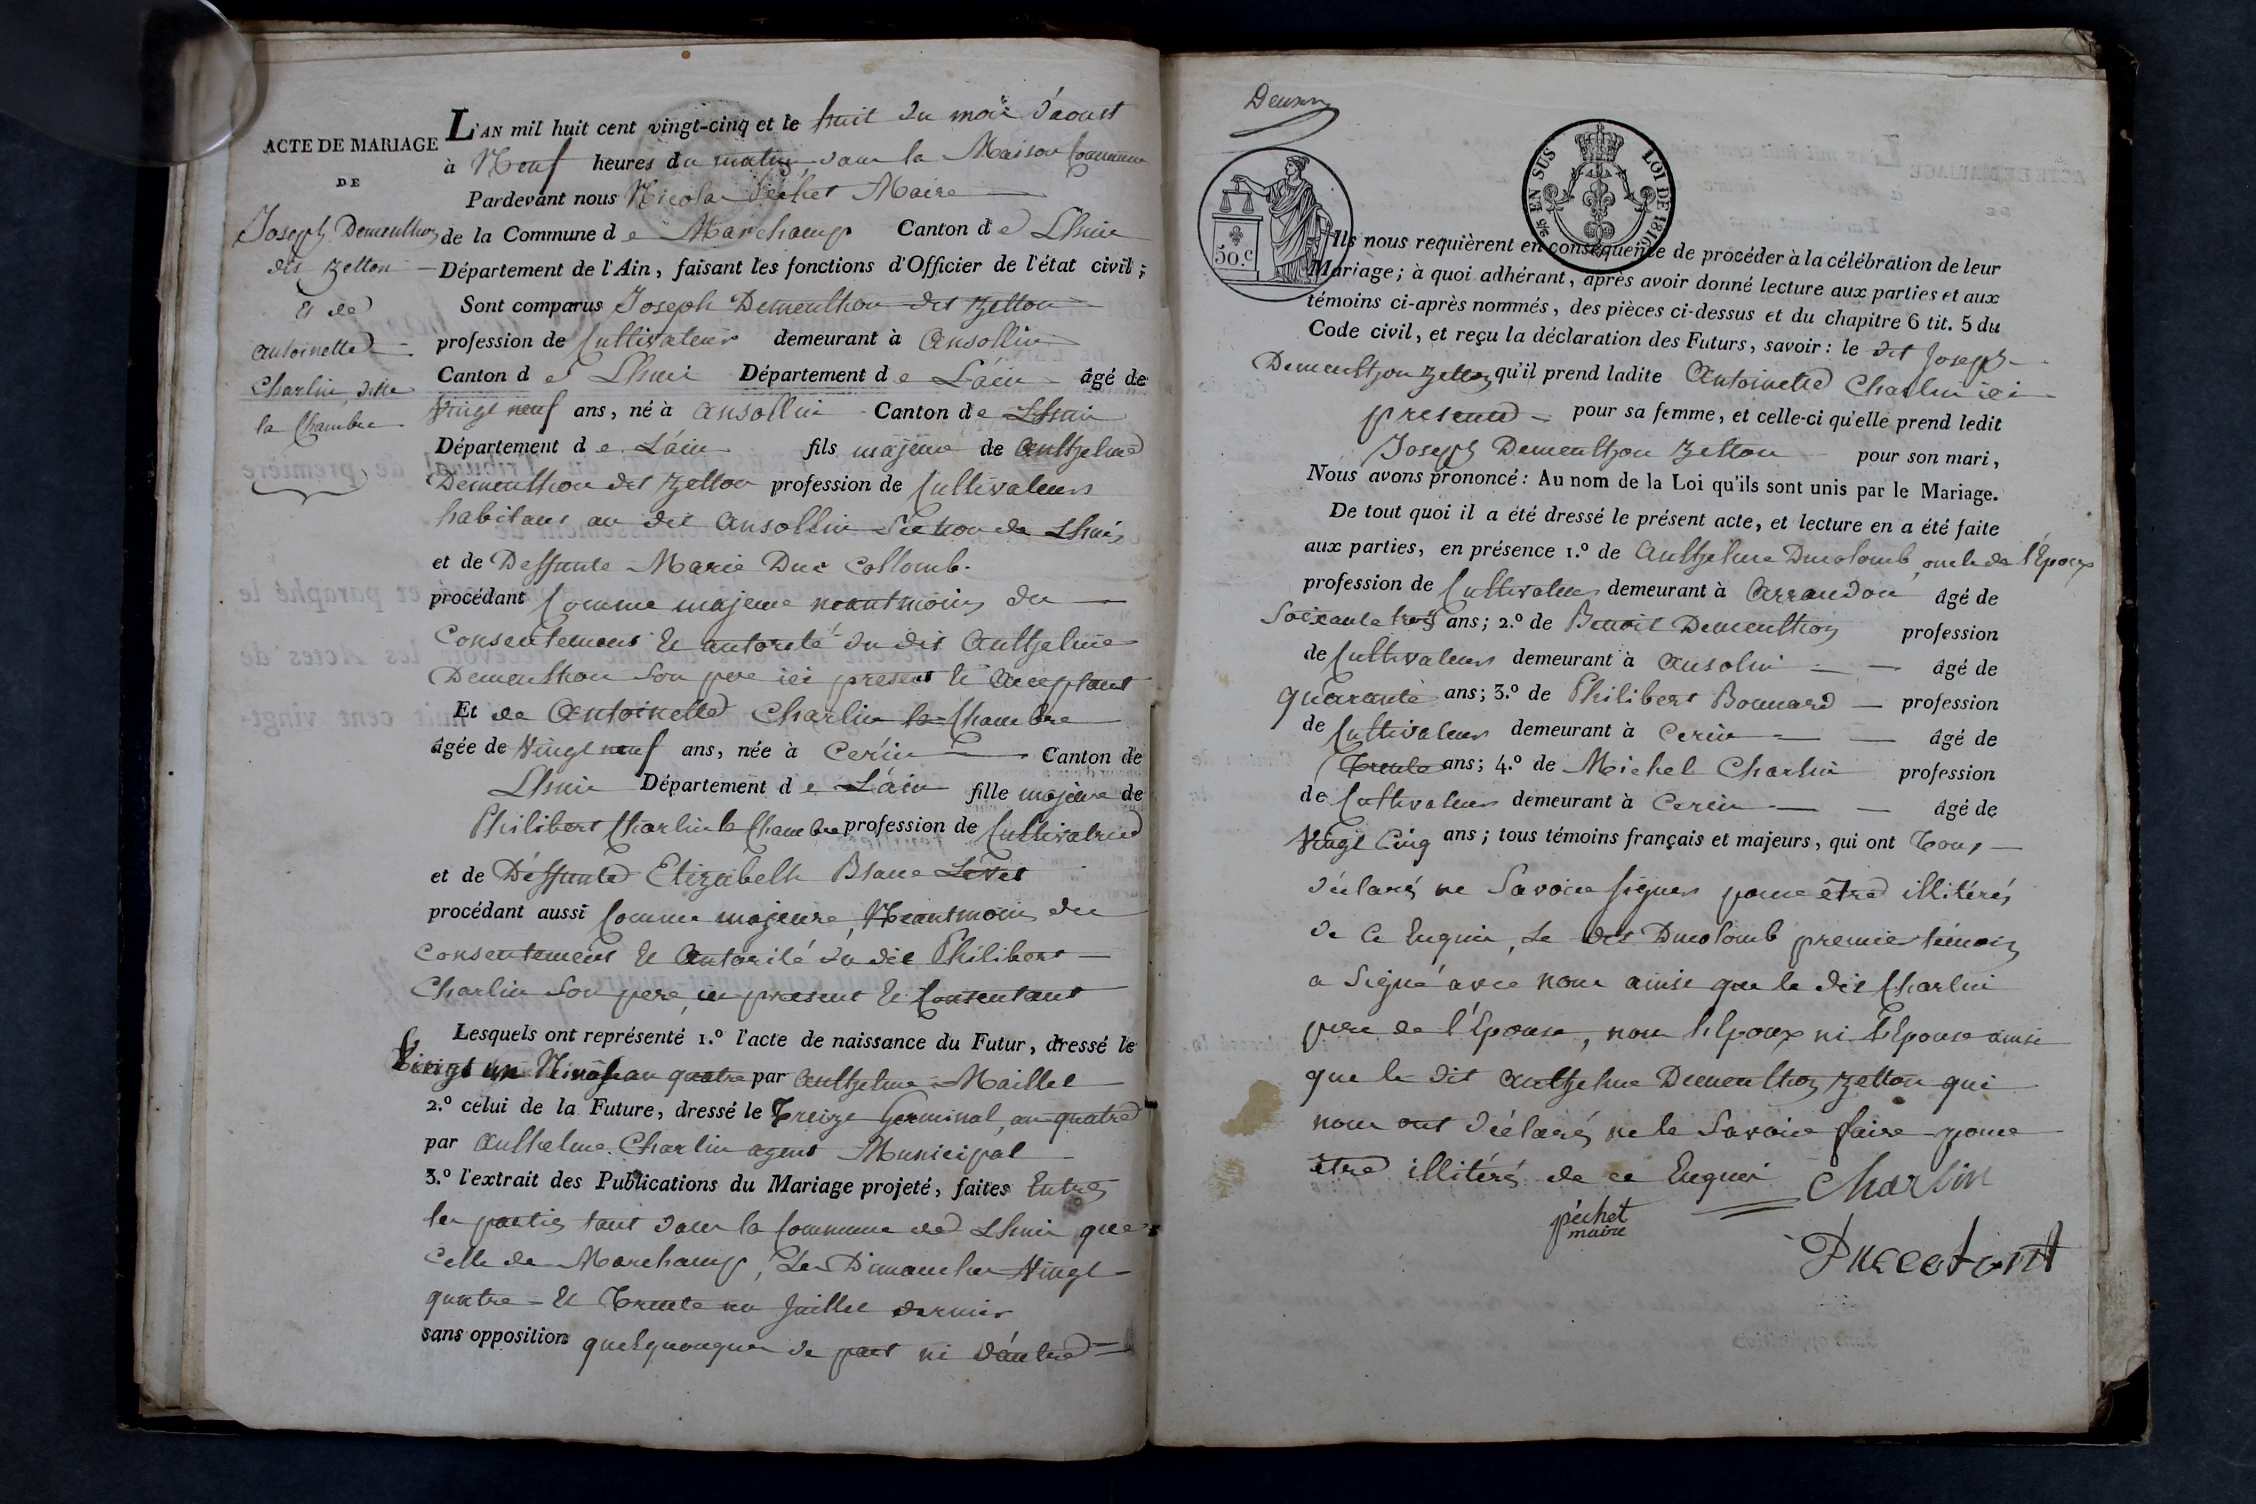 ACTE DE MARIAGE
DE
Joseph Dementhon
dit Zetton
Et de
Antoinette
Charlin, ditte
la Chambre
L'AN mil huit cent vingt-cinq et le huit du mois d'aoust
à Neuf heures du matin, dans la Maison Commune
Pardevant nous Nicolas Péchet Maire
de la Commune de Marchamp Canton de Lhuis
Département de l'Ain, faisant les fonctions d'Officier de l'état civil ;
Sont comparus Joseph Dementhon dit Zetton
profession de Cultivateur demeurant à Ansollin
Canton de Lhuis Département de L'ain âgé de
Vingt neuf ans, né à Ansollin Canton de Lhuis
Département de L'ain fils majeur de Anthelme
Dementhon dit Zetton profession de Cultivateurs
habitans au dit Ansollin Section de Lhuis
et de Deffunte Marie Duc Collomb.
procédant Comme majeur neantmoins du
Consentement Et autorité du dit Anthelme
Dementhon Son pere ici present Et Acceptant
Et de Antoinette Charlin la Chambre
âgée de Vingt neuf ans, née à Cerin Canton de
Lhuis Département de L'ain fille majeure de
Philibert Charlin la Chambre profession de Cultivatrice
et de Déffunte Elizabelh Blanc
procédant aussi Comme majeure, Neantmoins du
Consentement Et Autorité du dit Philibert
Charlin Son pere, ici present Et Consentant
Lesquels ont représenté 1.º l'acte de naissance du Futur, dressé le
Vingt un Nivose an quatre par Anthelme Maillet
2.º celui de la Future, dressé le Treize Germinal, an quatre
par Anthelme Charlin agent Municipal
3.º l'extrait des Publications du Mariage projeté, faites Entre
les parties tant dans la Commune de Lhuis que
Celle de Marchamp, Les Dimanches Vingt
quatre Et Trente un Juillet dernier
sans opposition quelquonques de part ni d'autre
Deuxn
50.C
25 EN SUS LOI DE 1816
Ils nous requièrent en conséquence de procéder à la célébration de leur
Mariage ; à quoi adhérant, après avoir donné lecture aux parties et aux
témoins ci-après nommés, des pièces ci-dessus et du chapitre 6 tit. 5 du
Code civil, et reçu la déclaration des Futurs, savoir : le dit Joseph
Dementhon Zetton qu'il prend ladite Antoinette Charlin ici
presente pour sa femme, et celle-ci qu'elle prend ledit
Joseph Dementhon Zetton pour son mari,
Nous avons prononcé : Au nom de la Loi qu'ils sont unis par le Mariage.
De tout quoi il a été dressé le présent acte, et lecture en a été faite
aux parties, en présence 1.º de Anthelme Ducolomb, oncle de l'Epoux
profession de Cultivateur demeurant à Arrandon âgé de
Soixante trois ans ; 2.º de Benoit Dementhon profession
de Cultivateur demeurant à Ansolin âgé de
quarante ans ; 3.º de Philibert Bonnard profession
de Cultivateur demeurant à Cerin âgé de
Trente ans ; 4.º de Michel Charlin profession
de Cultivateur demeurant à Cerin âgé de
Vingt Cinq ans ; tous témoins français et majeurs, qui ont Tous
déclarés ne Savoir signer pour être illitérés
de Ce Enquis, Le dit Ducolomb premier témoin
a Signé avec nous ainsi que le dit Charlin
pere de l'Epouse, non l'Epoux ni l'Epouse ainsi
que le dit Anthelme Dementhon Zetton qui
nous ont déclarés ne le Savoir faire pour
être illitérés de ce Enquis Charlin
péchet
maire
Duccolomb